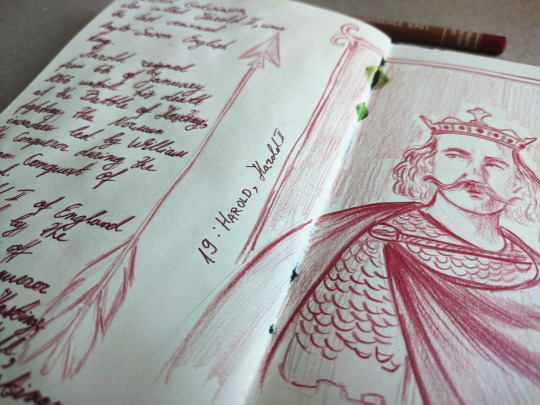 Godwinson,
also Harold II, was
the last crowned
Anglo-Saxon English
King
Harold reigned
from 6th of January
1066 until his death
at the Battle of Hastings,
fighting the Norman
led by William
Conqueror during the
Conquest of
II of England
by the
of
Hastings
19: HAROLD, Harold II